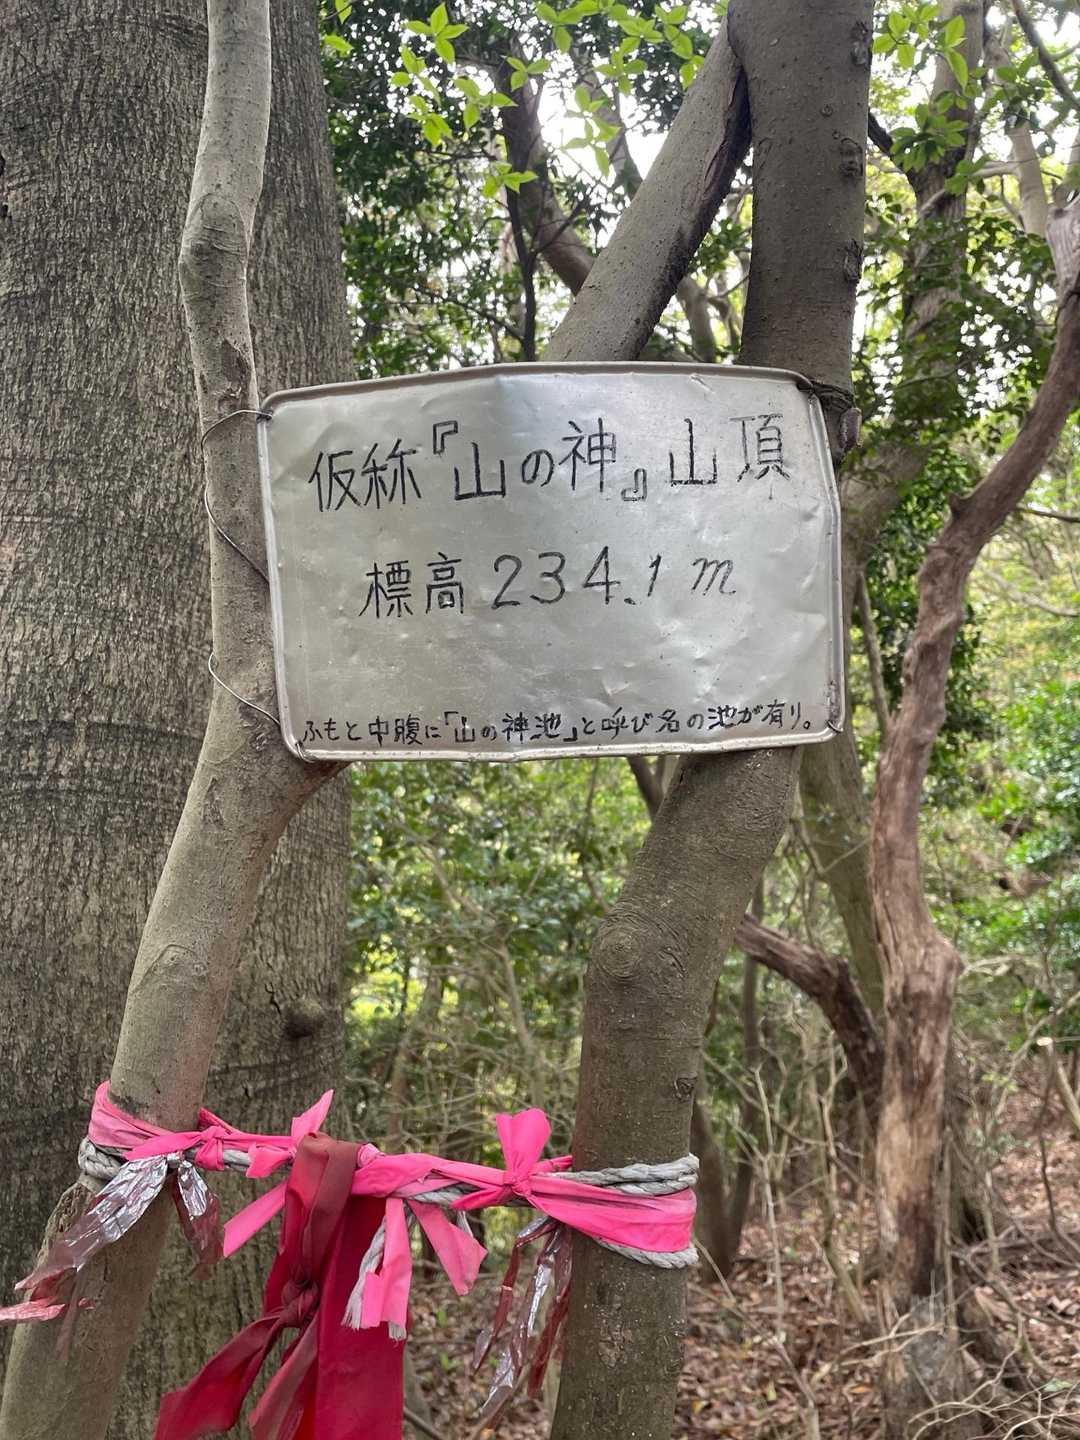 仮称『山の神』山頂
標高234.1m
ふもと中腹に「山の神池」と呼び名の池が有り。